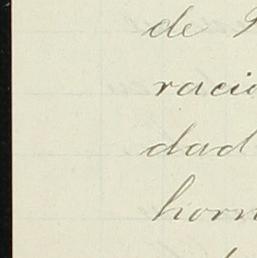 de
racio
dad
horn